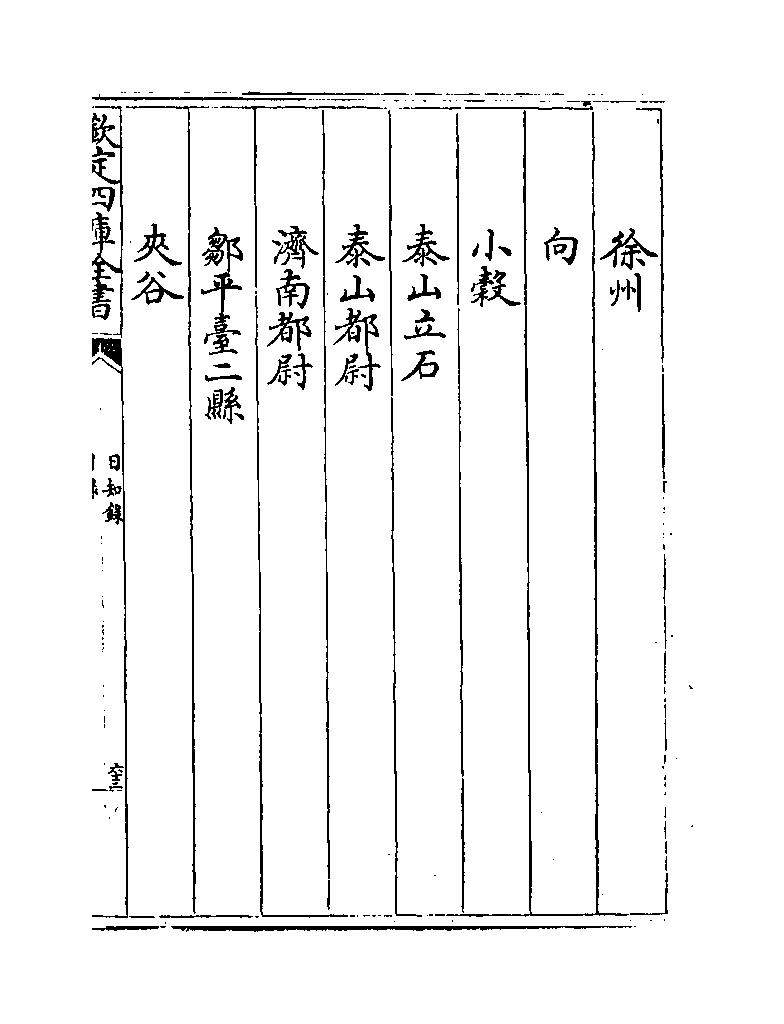 徐州
向
小穀
泰山立石
泰山都尉
濟南都尉
鄒平臺二縣
夾谷
欽定四庫全書
日知錄
目錄